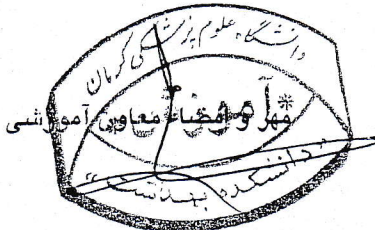 دانشگاه علوم پزشکی کرمان
آموزش
*مهر و امضاء معاون آموزشی
"دانشکده بهداشت"